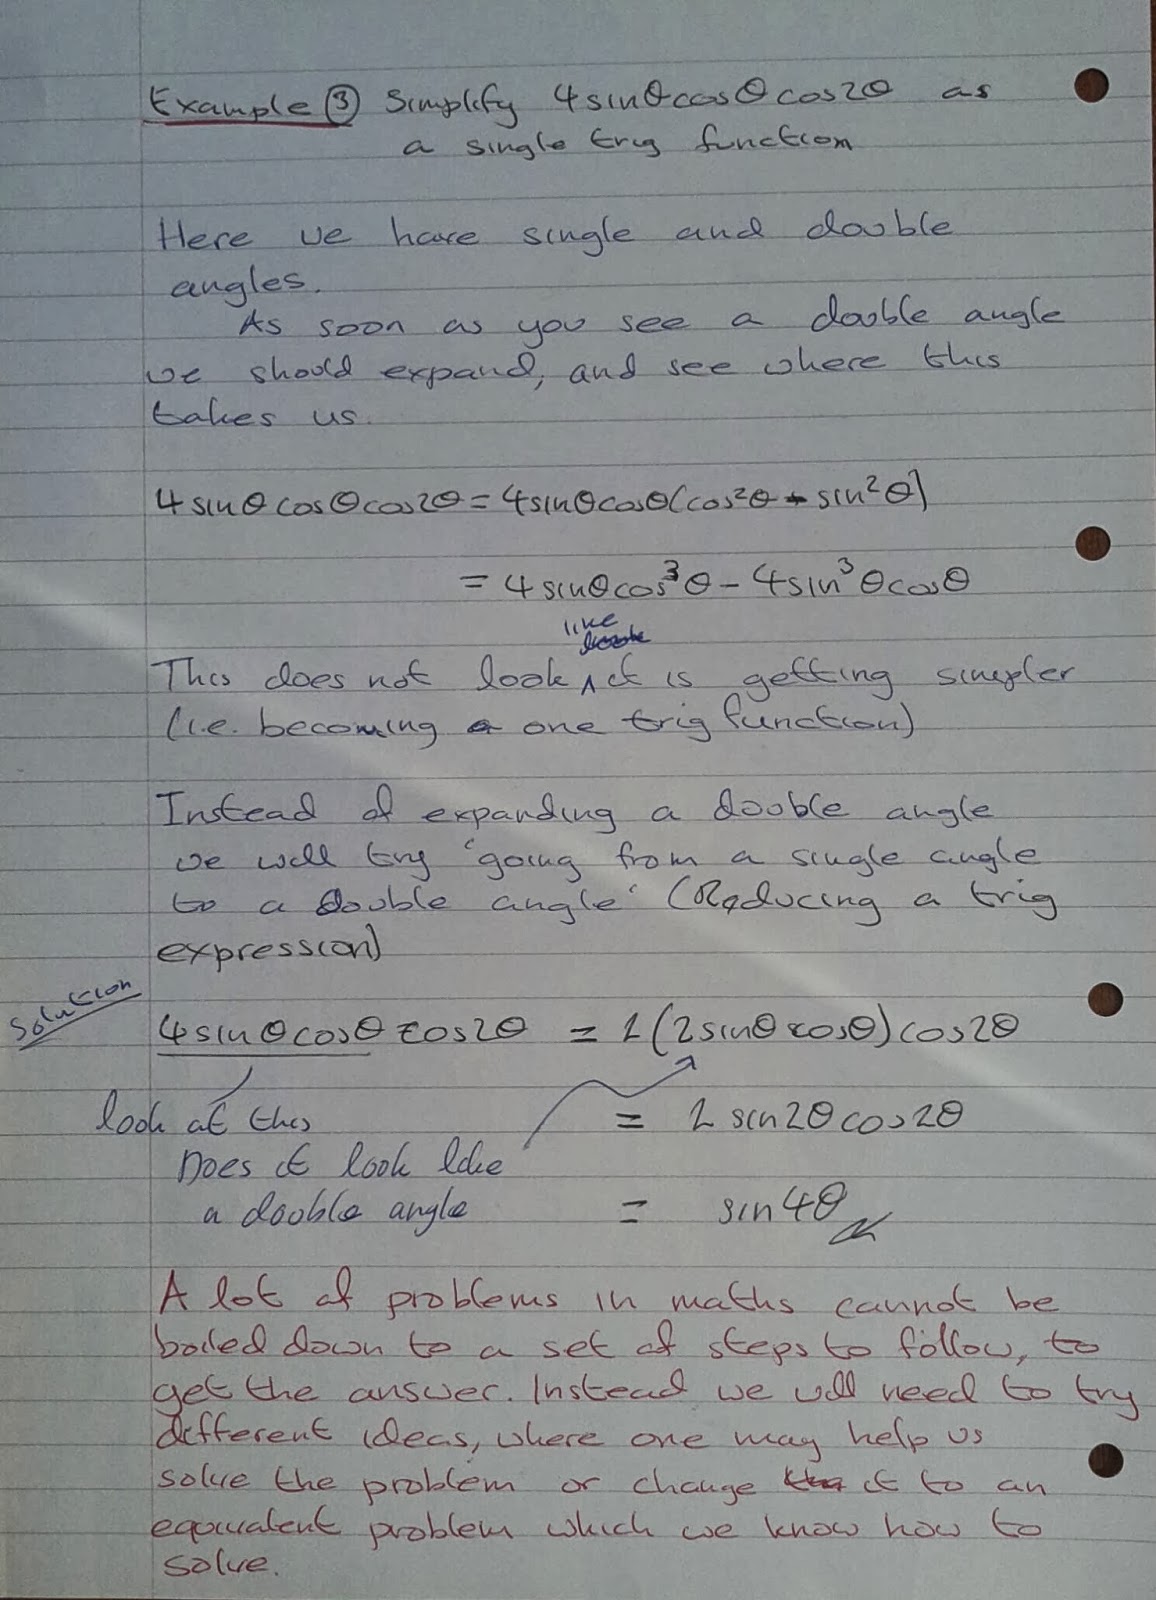 Example ③ Simplify 4sinθcosθcos2θ as
a single trig function
Here we have single and double
angles.
As soon as you see a double angle
we should expand, and see where this
takes us.
4sinθcosθcos2θ = 4sinθcosθ(cos²θ - sin²θ)
= 4sinθcos³θ - 4sin³θcosθ
like
This does not look ∧ it is getting simpler
(i.e. becoming one trig function)
Instead of expanding a double angle
we will try 'going from a single angle
to a double angle' (Reducing a trig
expression)
Solution
4sinθcosθcos2θ = 2(2sinθcosθ)cos2θ
look at this
= 2sin2θcos2θ
Does it look like
a double angle
= sin4θ
A lot of problems in maths cannot be
boiled down to a set of steps to follow, to
get the answer. Instead we will need to try
different ideas, where one may help us
solve the problem or change it to an
equivalent problem which we know how to
solve.